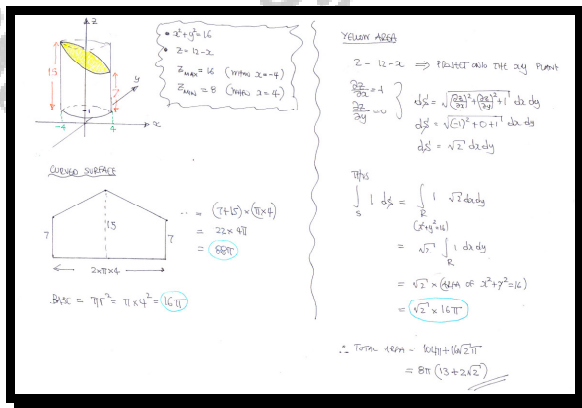 z
15
7
y
-4
-1
4
x
• x²+y²=16
• z = 12-x
Z MAX = 16 (WHEN x=-4)
Z MIN = 8 (WHEN x=4)
CURVED SURFACE
7
15
7
2×π×4
∴ = (7+15)×(π×4)
= 22×4π
= 88π
BASE = πr² = π×4² = 16π
YELLOW AREA
z = 12-x ⇒ PROJECT ONTO THE xy PLANE
∂z/∂x = -1
∂z/∂y = 0
dS = √((∂z/∂x)²+(∂z/∂y)²+1) dx dy
dS = √((-1)²+0+1) dx dy
dS = √2 dx dy
THUS
∫_S 1 dS = ∫_R 1 √2 dx dy
(x²+y²=16)
= √2 ∫_R 1 dx dy
= √2 × (AREA OF x²+y²=16)
= √2 × 16π
∴ TOTAL AREA = 104π+16√2π
= 8π(13+2√2)